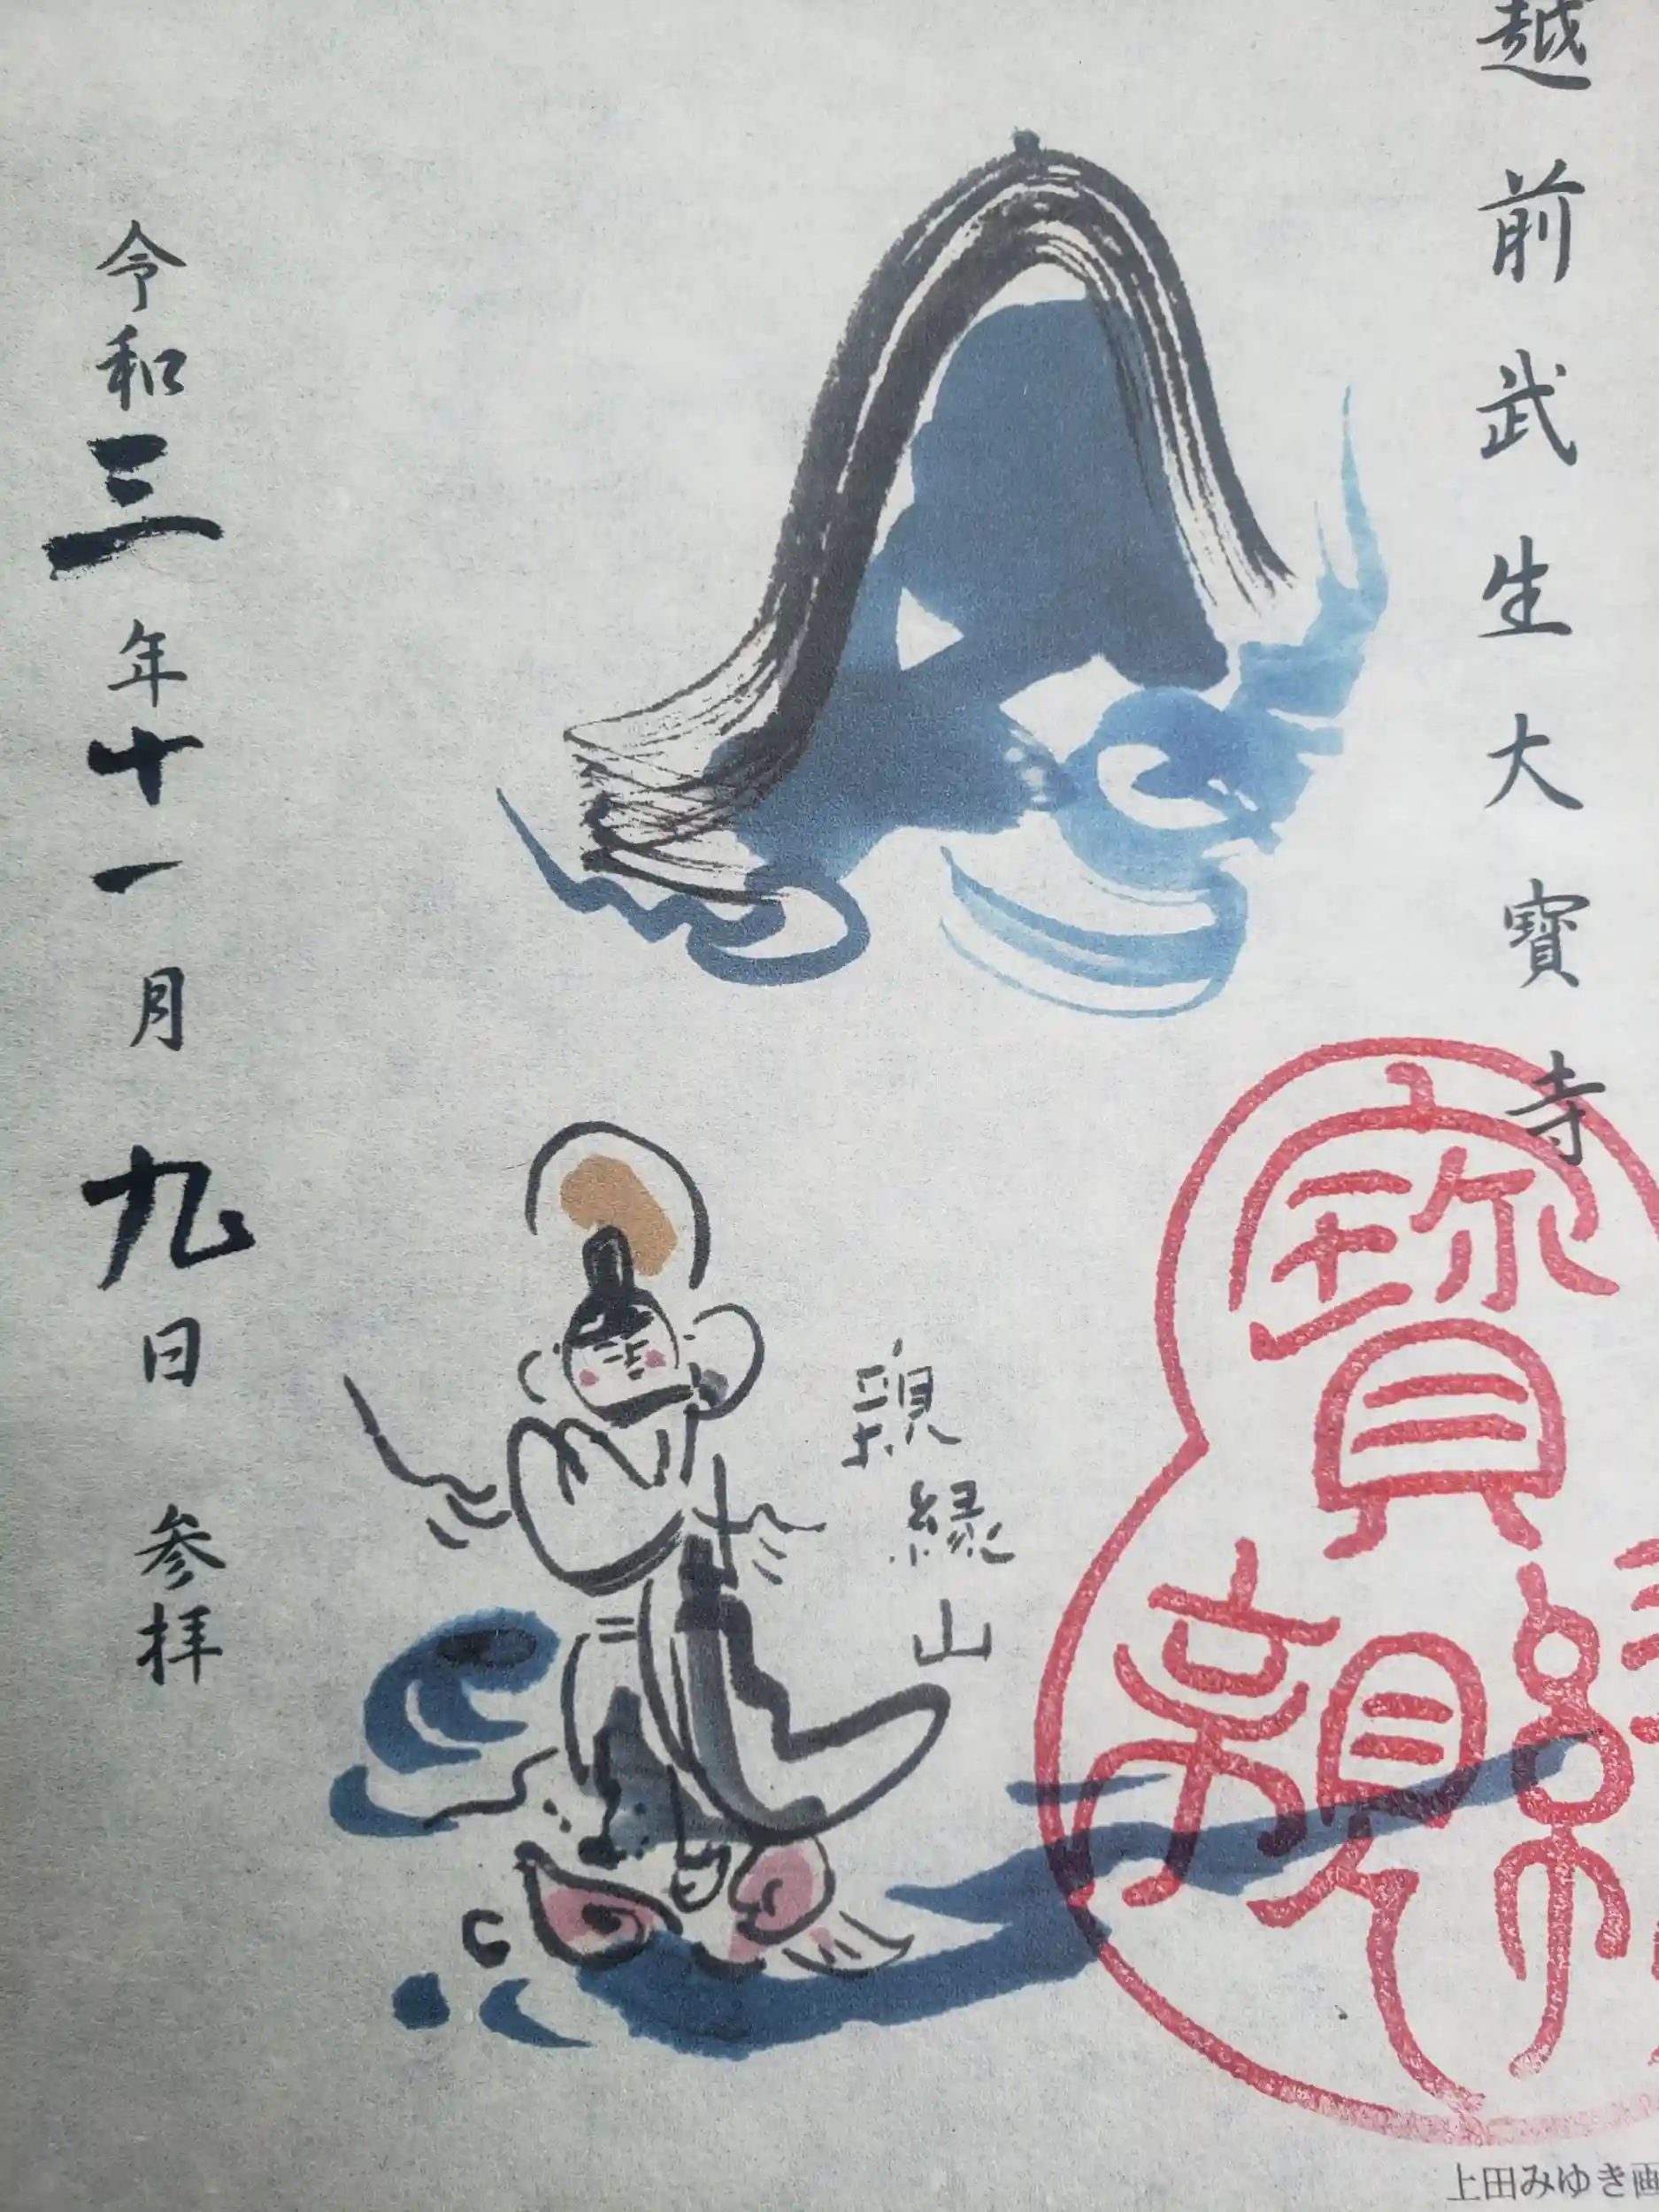 越前武生大寶寺
親縁山
令和三年十一月九日 参拝
寶
親縁
上田みゆき画